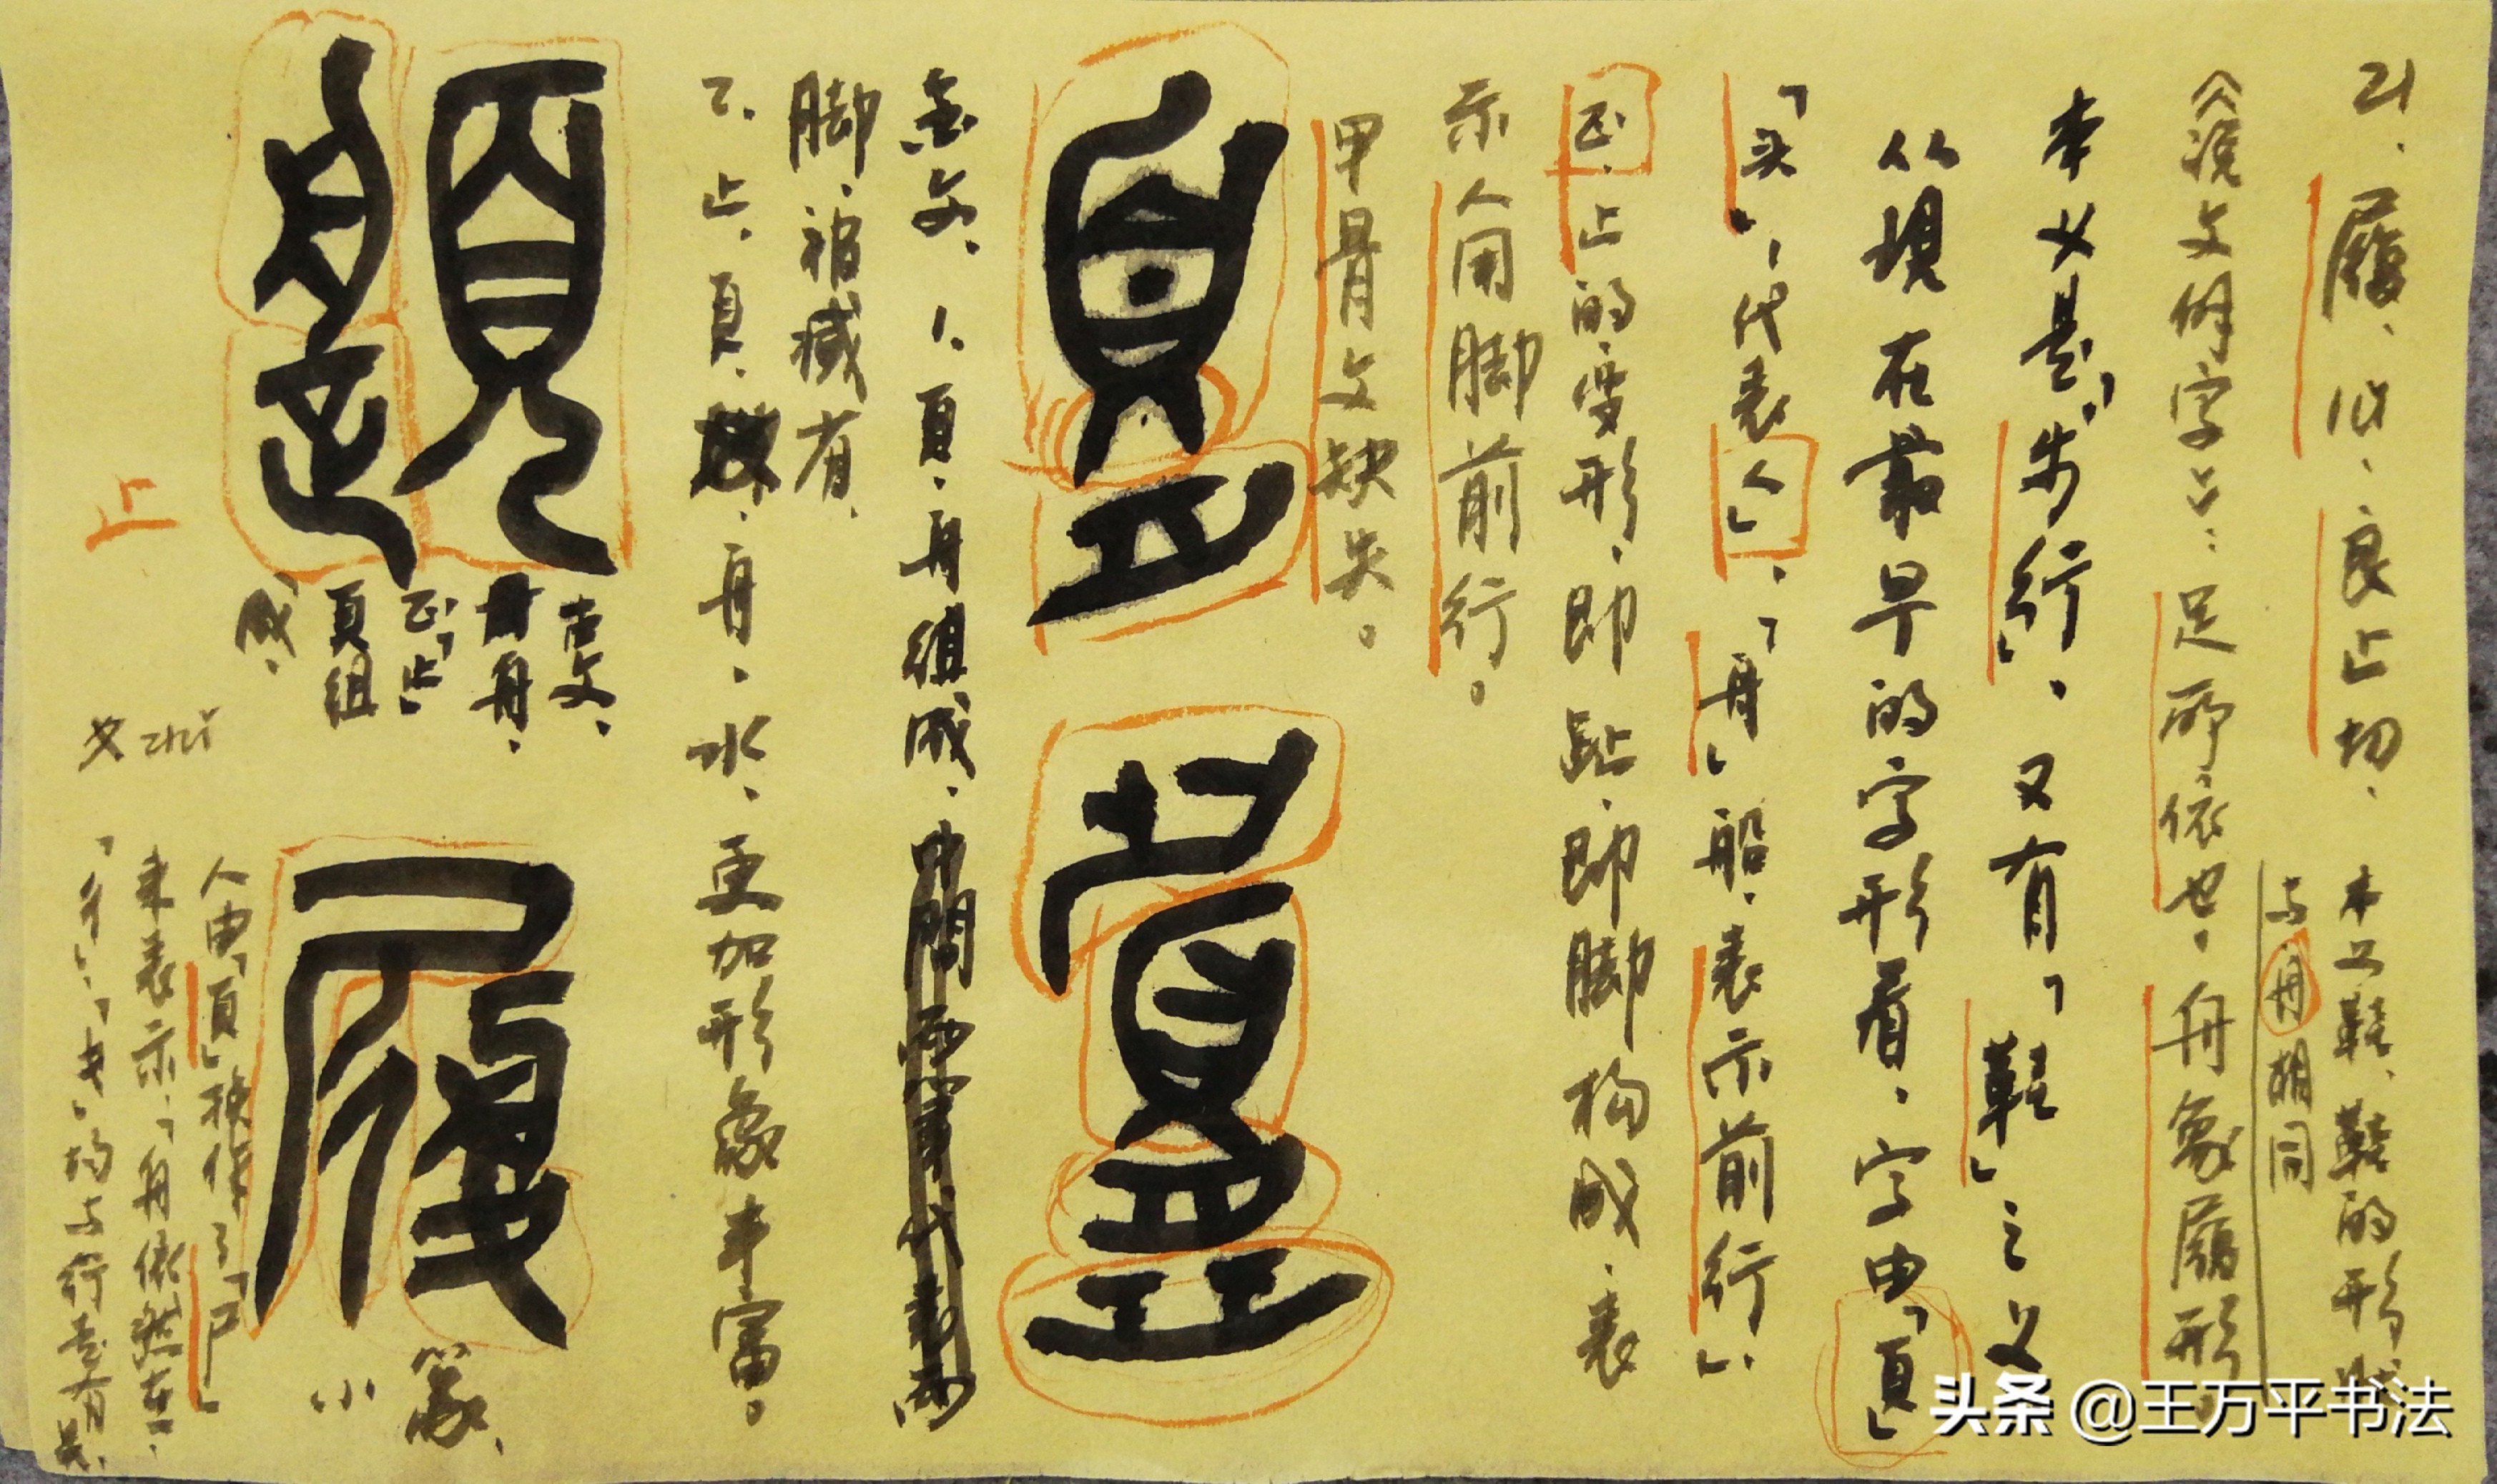 21、履、lǚ、良止切、本义鞋、鞋的形状
与舟相同
《说文解字》：足所依也。舟象履形。
本义是「步行」、又有「鞋」之义
从现在最早的字形看，字由「頁」
「头」，代表「人」，「舟」船，表示前行」，
疋，止的变形，即趾，即脚构成，表
示人用脚前行。
甲骨文缺失。
金文，1、頁、舟组成，
脚、裆减省，
2、止、頁、舟、水，更加形象丰富。
古文、
舟、
疋「止」
頁组
成、
止
夂zhǐ
小
篆、
人由「頁」换作了「尸」
来表示，「舟依然在、
「彳」、「夂」均与行走有关、
头条 @王万平书法